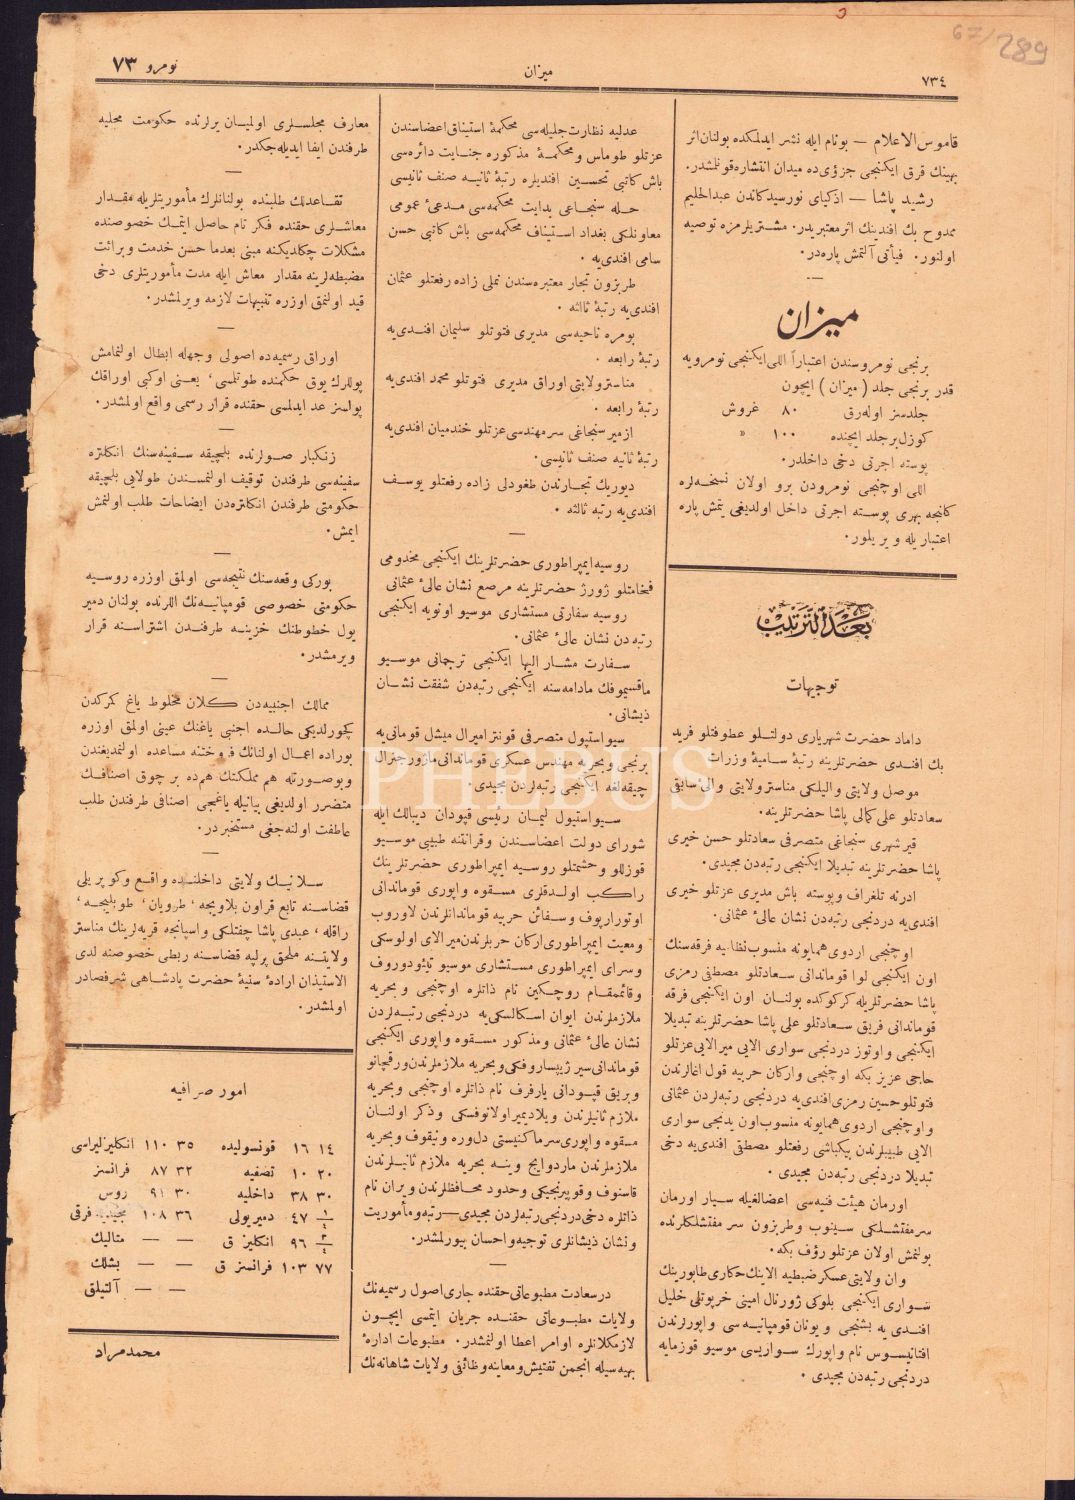 67/289
٧٣٤
ميزان
نومرو ٧٣
قاموس الاعلام — بونام ايله نشر ايدلمكده بولنان اثر
بهينك قرق ايكنجى جزؤى ده ميدان انتشاره قونلمشدر.
رشيد پاشا — اذكياى نورسيدكاندن عبدالحليم
ممدوح بك افندينك اثر معتبريدر. مشتريلرمزه توصيه
اولنور. فيأتى آلتمش پاره در.
ميزان
برنجى نومروسندن اعتباراً اللى ايكنجى نومرويه
قدر برنجى جلد ( ميزان ) ايچون
جلدسز اوله رق ٨٠ غروش
كوزل بر جلد ايچنده ١٠٠ »
پوسته اجرتى دخى داخلدر.
اللى اوچنجى نومرودن برو اولان نسخه لره
كلنجه بهرى پوسته اجرتى داخل اولديغى يتمش پاره
اعتباريله ويريلور.
بعد الترتيب
توجيهات
داماد حضرت شهريارى دولتلو عطوفتلو فريد
بك افندى حضرتلرينه رتبۀ ساميۀ وزارت
موصل ولايتى واليلكى مناستر ولايتى والئ سابقى
سعادتلو على كمالى پاشا حضرتلرينه.
قيرشهرى سنجاغى متصرفى سعادتلو حسن خيرى
پاشا حضرتلرينه تبديلا ايكنجى رتبه دن مجيدى.
ادرنه تلغراف وپوسته باش مديرى عزتلو خيرى
افندى يه دردنجى رتبه دن نشان عالئ عثمانى.
اوچنجى اردوى همايونه منسوب نظاميه فرقه سنك
اون ايكنجى لوا قوماندانى سعادتلو مصطفى رمزى
پاشا حضرتلريله كركوكده بولنان اون ايكنجى فرقه
قوماندانى فريق سعادتلو على پاشا حضرتلرينه تبديلا
ايكنجى واوتوز دردنجى سوارى الايى ميرالايى عزتلو
حاجى عزيز بكه اوچنجى واركان حربيه قول اغالرندن
فتوتلو حسين رمزى افندى يه دردنجى رتبه لردن عثمانى
واوچنجى اردوى همايونه منسوب اون يدنجى سوارى
الايى طبيبلرندن بيكباشى رفعتلو مصطفى افندى يه دخى
تبديلا دردنجى رتبه دن مجيدى.
اورمان هيئت فنيه سى اعضالغيله سيار اورمان
سرمفتشلكى سينوب وطربزون سر مفتشلكلرنده
بولنمش اولان عزتلو رؤف بكه.
وان ولايتى عسكر ضبطيه الاينك حكارى طابورينك
سوارى ايكنجى بلوكى ژورنال امينى خرپوتلى خليل
افندى يه بشنجى ويونان قومپانيه سى واپورلرندن
افتانيسوس نام واپورك سواريسى موسيو قوزمايه
دردنجى رتبه دن مجيدى.
عدليه نظارت جليله سى محكمۀ استيناف اعضاسندن
عزتلو طوماس ومحكمۀ مذكوره جنايت دائره سى
باش كاتبى تحسين افنديلره رتبۀ ثانيه صنف ثانيسى
حله سنجاعى بدايت محكمه سى مدعئ عمومى
معاونلكى بغداد استيناف محكمه سى باش كاتبى حسن
سامى افندى يه.
طربزون تجار معتبره سندن نملى زاده رفعتلو عثمان
افندى يه رتبۀ ثالثه.
بومره ناحيه سى مديرى فتوتلو سليمان افندى يه
رتبۀ رابعه.
مناستر ولايتى اوراق مديرى فتوتلو محمد افندى يه
رتبۀ رابعه.
ازمير سنجاغى سرمهندسى عزتلو خندميان افندى يه
رتبۀ ثانيه صنف ثانيسى.
ديوريك تجارندن طغودلى زاده رفعتلو يوسف
افندى يه رتبۀ ثالثه.
روسيه ايمپراطورى حضرتلرينك ايكنجى مخدومى
فخامتلو ژورژ حضرتلرينه مرصع نشان عالئ عثمانى
روسيه سفارتى مستشارى موسيو اونويه ايكنجى
رتبه دن نشان عالئ عثمانى.
سفارت مشار اليها ايكنجى ترجمانى موسيو
ماقسيموفك مادامه سنه ايكنجى رتبه دن شفقت نشان
ذيشانى.
سيواستپول متصرفى قونتر اميرال ميشل قومانى يه
برنجى وبحريه مهندس عسكرى قوماندانى ماژور جنرال
چيقه لغه ايكنجى رتبه لردن مجيدى.
سيواستپول ليمان رئيسى قپودان ديبالك ايله
شوراى دولت اعضاسندن وقرانتنه طبيبى موسيو
قوزللو وحشمتلو روسيه ايمپراطورى حضرتلرينك
راكب اولدقلرى مسقوه واپورى قوماندانى
اوتورارپوف وسفائن حربيه قوماندانلرندن لاوروب
ومعيت ايمپراطورى اركان حربلرندن ميرالاى اولوسكى
وسراى ايمپراطورى مستشارى موسيو تيئودوروف
وقائممقام روچكين نام ذاتلره اوچنجى وبحريه
ملازملرندن ايوان اسكالسكى يه دردنجى رتبه لردن
نشان عالئ عثمانى ومذكور مسقوه واپورى ايكنجى
قوماندانى سير ژيپساروفكى وبحريه ملازملرندن ورقچانو
وبريق قپودانى يارفرف نام ذاتلره اوچنجى وبحريه
ملازم ثانيلرندن ويلاديمير اولانوفسكى وذكر اولنان
مسقوه واپورى سرماكنيستى دل وره ونيقوف وبحريه
ملازملرندن ماردوايج وينه بحريه ملازم ثانيلرندن
قاسنوف وقوپيرنجيكى وحدود محافظلرندن ويران نام
ذاتلره دخى دردنجى رتبه لردن مجيدى — رتبه ومأموريت
ونشان ذيشانلرى توجيه واحسان بيورلمشدر.
درسعادت مطبوعاتى حقنده جارى اصول رسميه نك
ولايات مطبوعاتى حقنده جريان ايتمسى ايچون
لازمكلانلره اوامر اعطا اولنمشدر. مطبوعات ادارۀ
بهيه سيله انجمن تفتيش ومعاينه وظائفى ولايات شاهانه نك
معارف مجلسلرى اولميان يرلرنده حكومت محليه
طرفندن ايفا ايديله جكدر.
تقاعدلك طلبنده بولنانلرك مأموريتلريله مقدار
معاشلرى حقنده فكر تام حاصل ايتمك خصوصنده
مشكلات چكلديكنه مبنى بعدما حسن خدمت وبرائت
مضبطه لرينه مقدار معاش ايله مدت مأموريتلرى دخى
قيد اولنمق اوزره تنبيهات لازمه ويرلمشدر.
اوراق رسميه ده اصولى وجهله ابطال اولنمامش
پوللرك يوق حكمنده طوتلمسى، يعنى اوكبى اوراقك
پولسز عد ايدلمسى حقنده قرار رسمى واقع اولمشدر.
زنكبار صولرنده بلچيقه سفينه سنك انكلتره
سفينه سى طرفندن توقيف اولنمسندن طولايى بلچيقه
حكومتى طرفندن انكلتره دن ايضاحات طلب اولنمش
ايمش.
بوركى وقعه سنك نتيجه سى اولمق اوزره روسيه
حكومتى خصوصى قومپانيه نك اللرنده بولنان دمير
يول خطوطنك خزينه طرفندن اشتراسنه قرار
ويرمشدر.
ممالك اجنبيه دن كلان مخلوط ياغ كمركدن
كچورلديكى حالده اجنبى ياغنك عينى اولمق اوزره
بوراده اعمال اولنانك فروختنه مساعده اولنمديغندن
وبوصورتله هم مملكتك هم ده بر چوق اصنافك
متضرر اولديغى بيانيله ياغمجى اصنافى طرفندن طلب
عاطفت اولنه جغى مستخبردر.
سلانيك ولايتى داخلنده واقع وكوپريلى
قضاسنه تابع قراون بلاويجه، طرويان، طوبليجه،
راقله، عبدى پاشا چفتلكى واسپانجه قريه لرينك مناستر
ولايتنه ملحق پرلپه قضاسنه ربطى خصوصنه لدى
الاستيذان ارادۀ سنيۀ حضرت پادشاهى شرفصادر
اولمشدر.
امور صرافيه
١٤ ١٦ قونسوليده ٣٥ ١١٠ انكليز ليراسى
٢٠ ١٠ تصفيه ٣٢ ٨٧ فرانسز
٣٠ ٣٨ داخليه ٣٠ ٩١ روس
١/٤ ٤٧ دميريولى ٣٦ ١٠٨ مجيديه فرقى
٣/٤ ٩٦ انكليز ق — — متاليك
٧٧ ١٠٣ فرانسز ق — — بشلك
— — آلتيلق
محمد مراد
PHEBUS